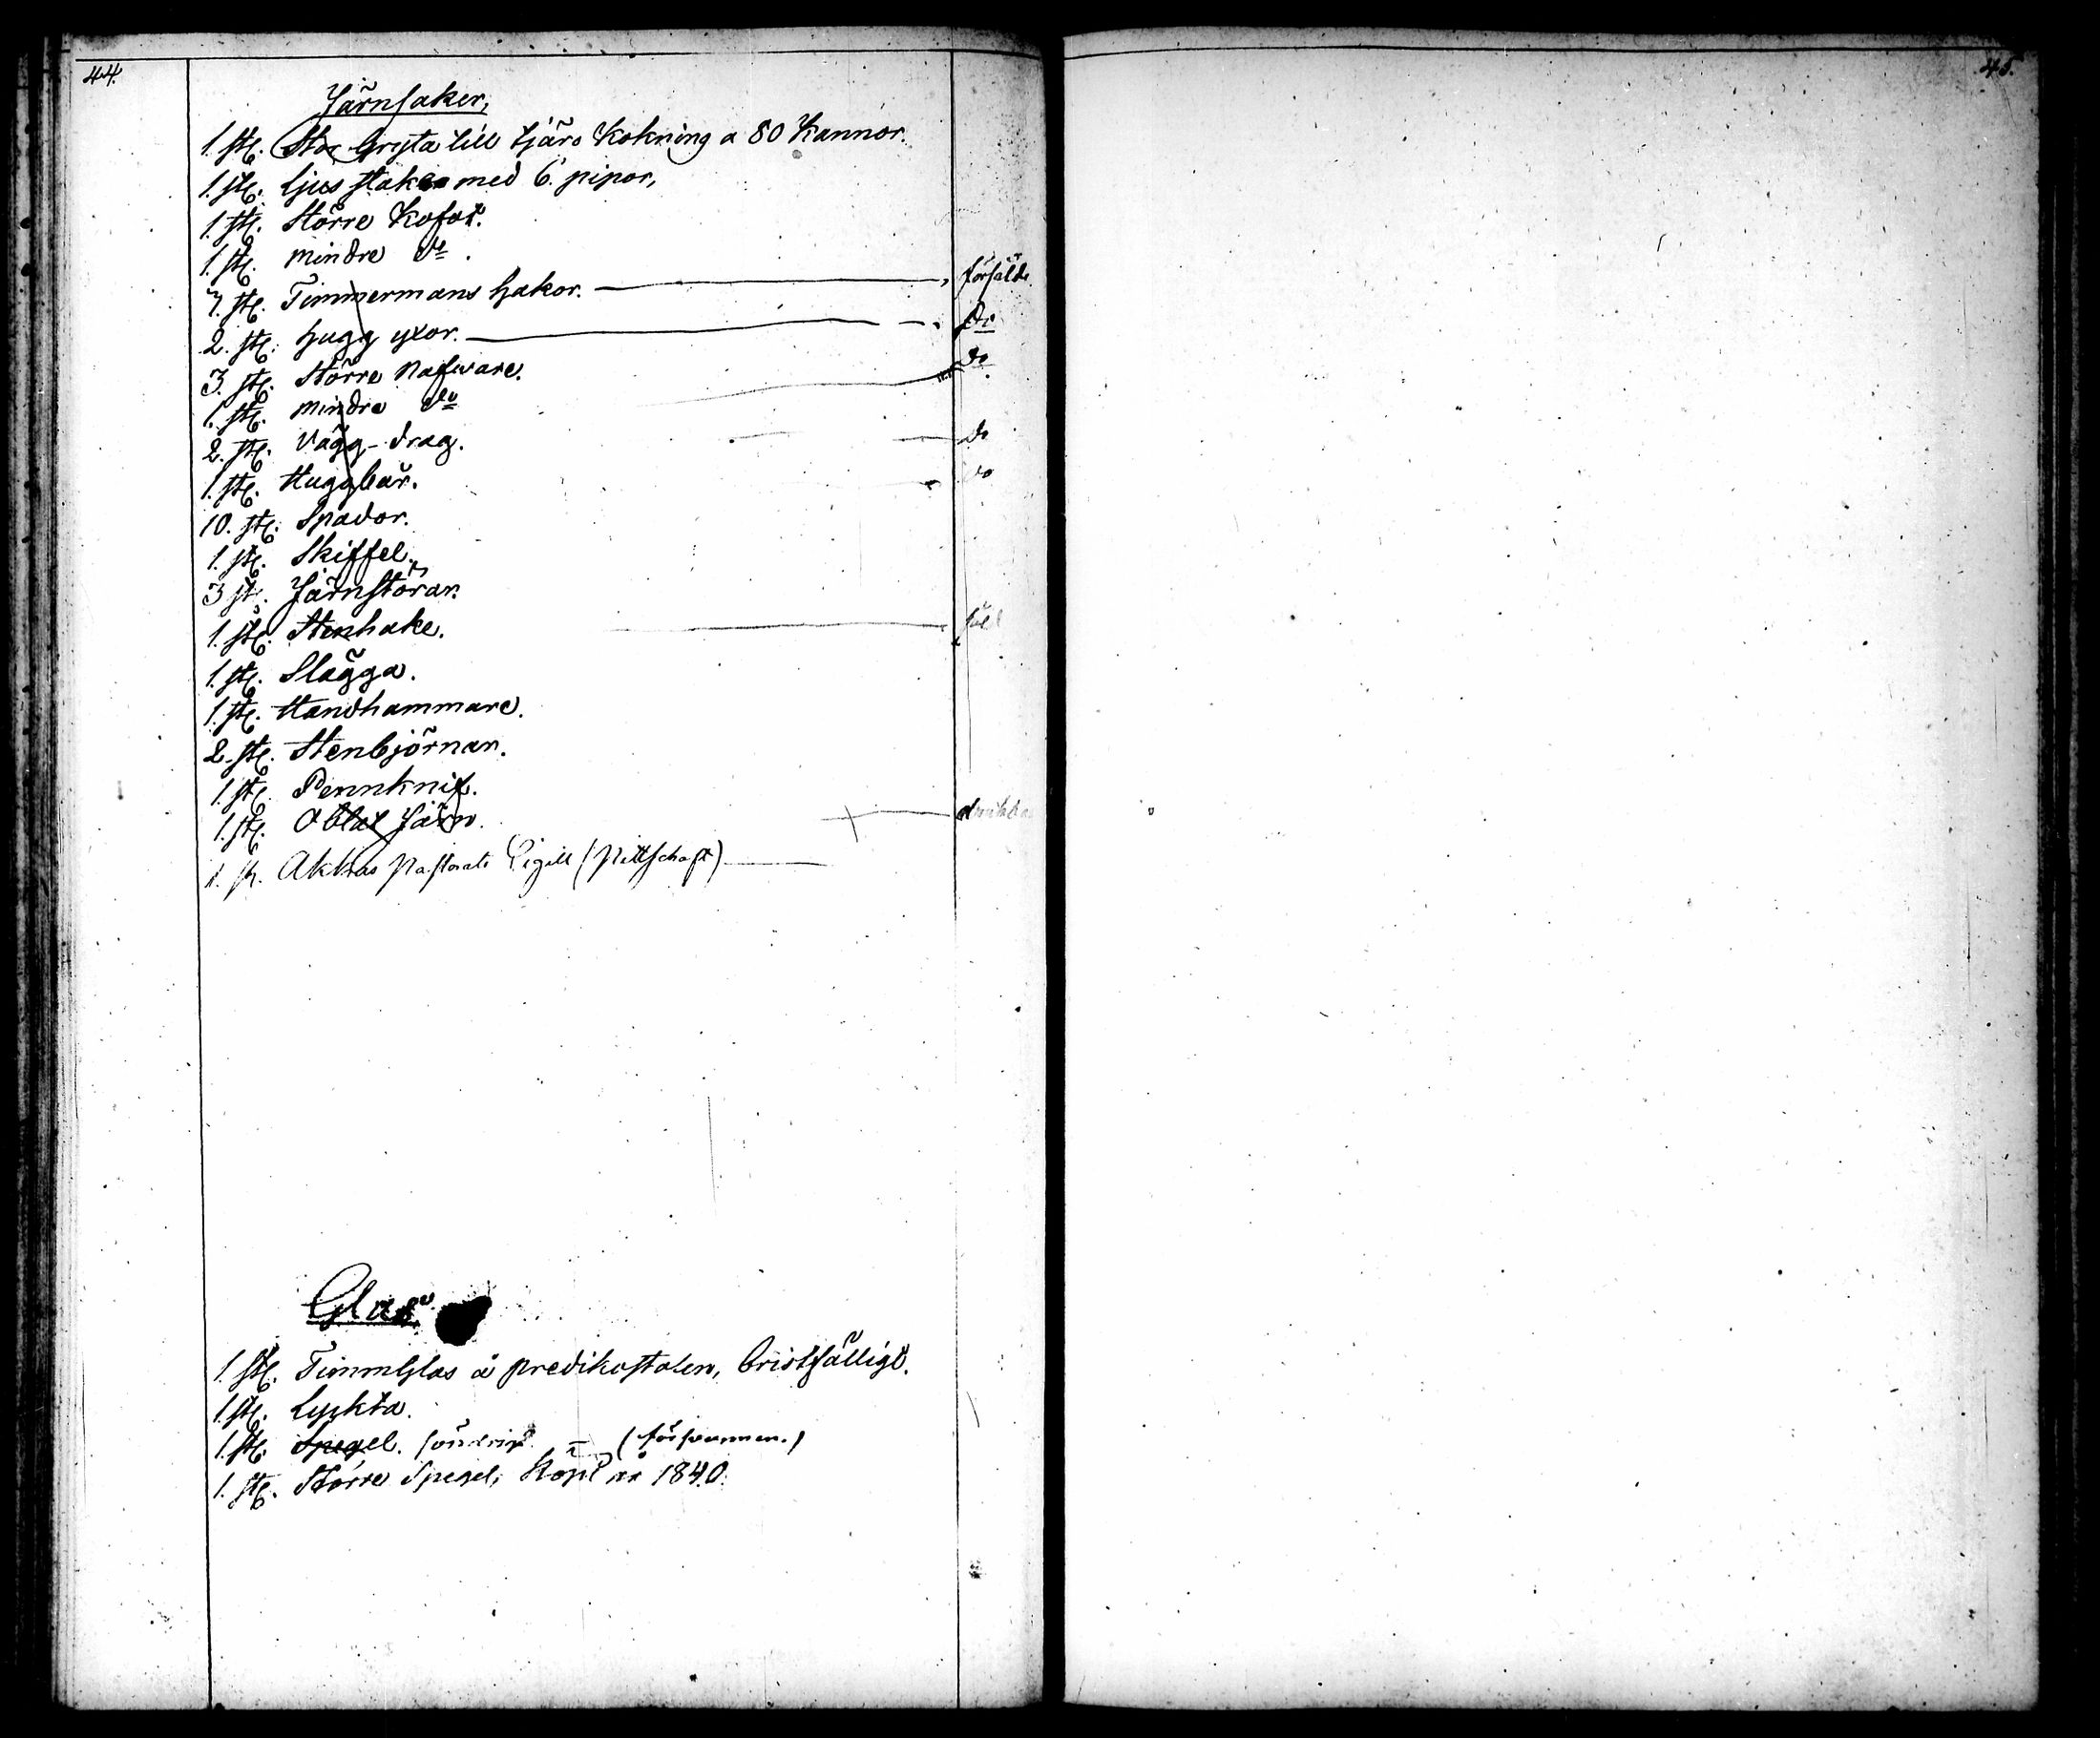 44.
Järnsaker,
1. st. Stor Gryta till tjära Kokning a 80 Kannor.
1. st. Ljus staken med 6. pipor,
1. st. Större Kofot.
1. st. mindre do.
7. st. Timmermans hakor. försålda
2. st. hugg yxor. do
3. st. Större nafware. do
1. st. mindre do
2. st. Vägg-drag. do
1. st. Huggbär. do
10. st. Spador.
1. st. Skiffel.
3 st. Järnstörar.
1. st. Stenhake. såld
1. st. Slägga.
1. st. Handhammare.
2. st. Stenbjörnar.
1. st. Pennknif.
1. st. Oblat Järn.
1. st. Akkas Pastorats Sigill (Pittschaft)
Glas
1. st. Timmglas å predikostolen, bristfälligt.
1. st. Lyckta.
1. st. Spegel. söndrig. (försvunnen.)
1. st. Större Spegel, Köpt år 1840.
45.